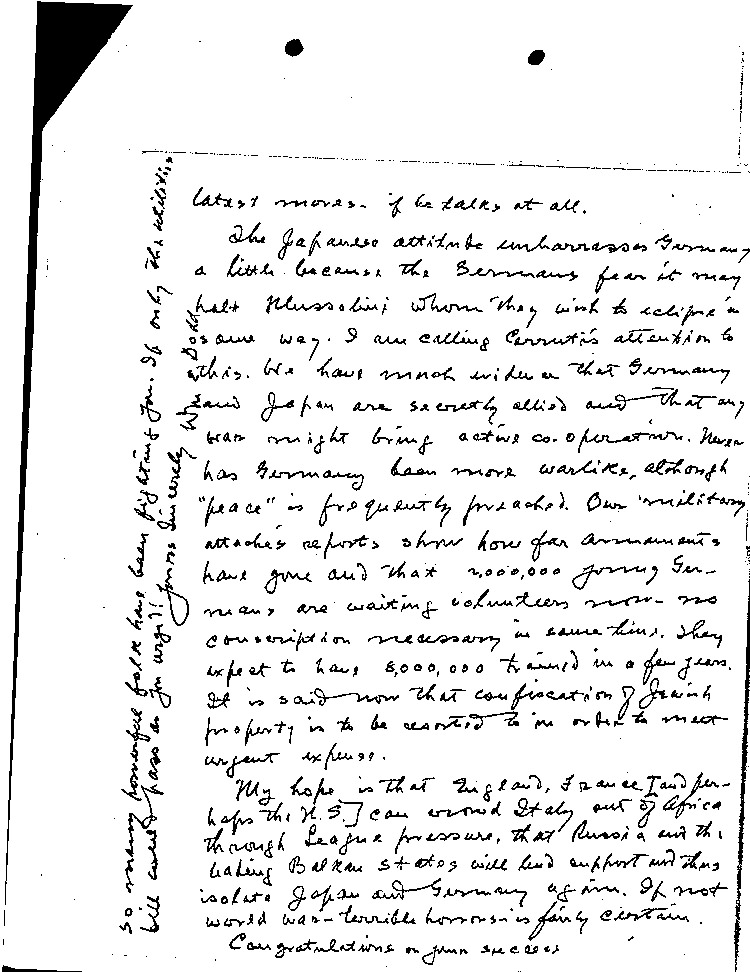 latest moves - if he talks at all.
The Japanese attitude embarrasses Germany
a little because the Germans fear it may
halt Mussolini whom they wish to eclipse in
some way. I am calling Cerruti's attention to
this. We have much evidence that Germany
and Japan are secretly allied and that any
war might bring active co-operation. Never
has Germany been more warlike, although
"peace" is frequently preached. Our military
attaché's reports show how far armaments
have gone and that 2,000,000 young Ger-
mans are waiting volunteers now - no
conscription necessary in some time. They
expect to have 8,000,000 trained in a few years.
It is said now that confiscation of Jewish
property is to be resorted to in order to meet
urgent expense.
My hope is that England, France [and per-
haps the U.S.] can crowd Italy out of Africa
through League pressure, that Russia and the
Balkan states will lend support and thus
isolate Japan and Germany again. If not
world war - terrible horrors - is fairly certain.
Congratulations on your success
So many powerful folk have been fighting you. If only the utilities
bill could pass as you urged! Yours Sincerely
William E. Dodd